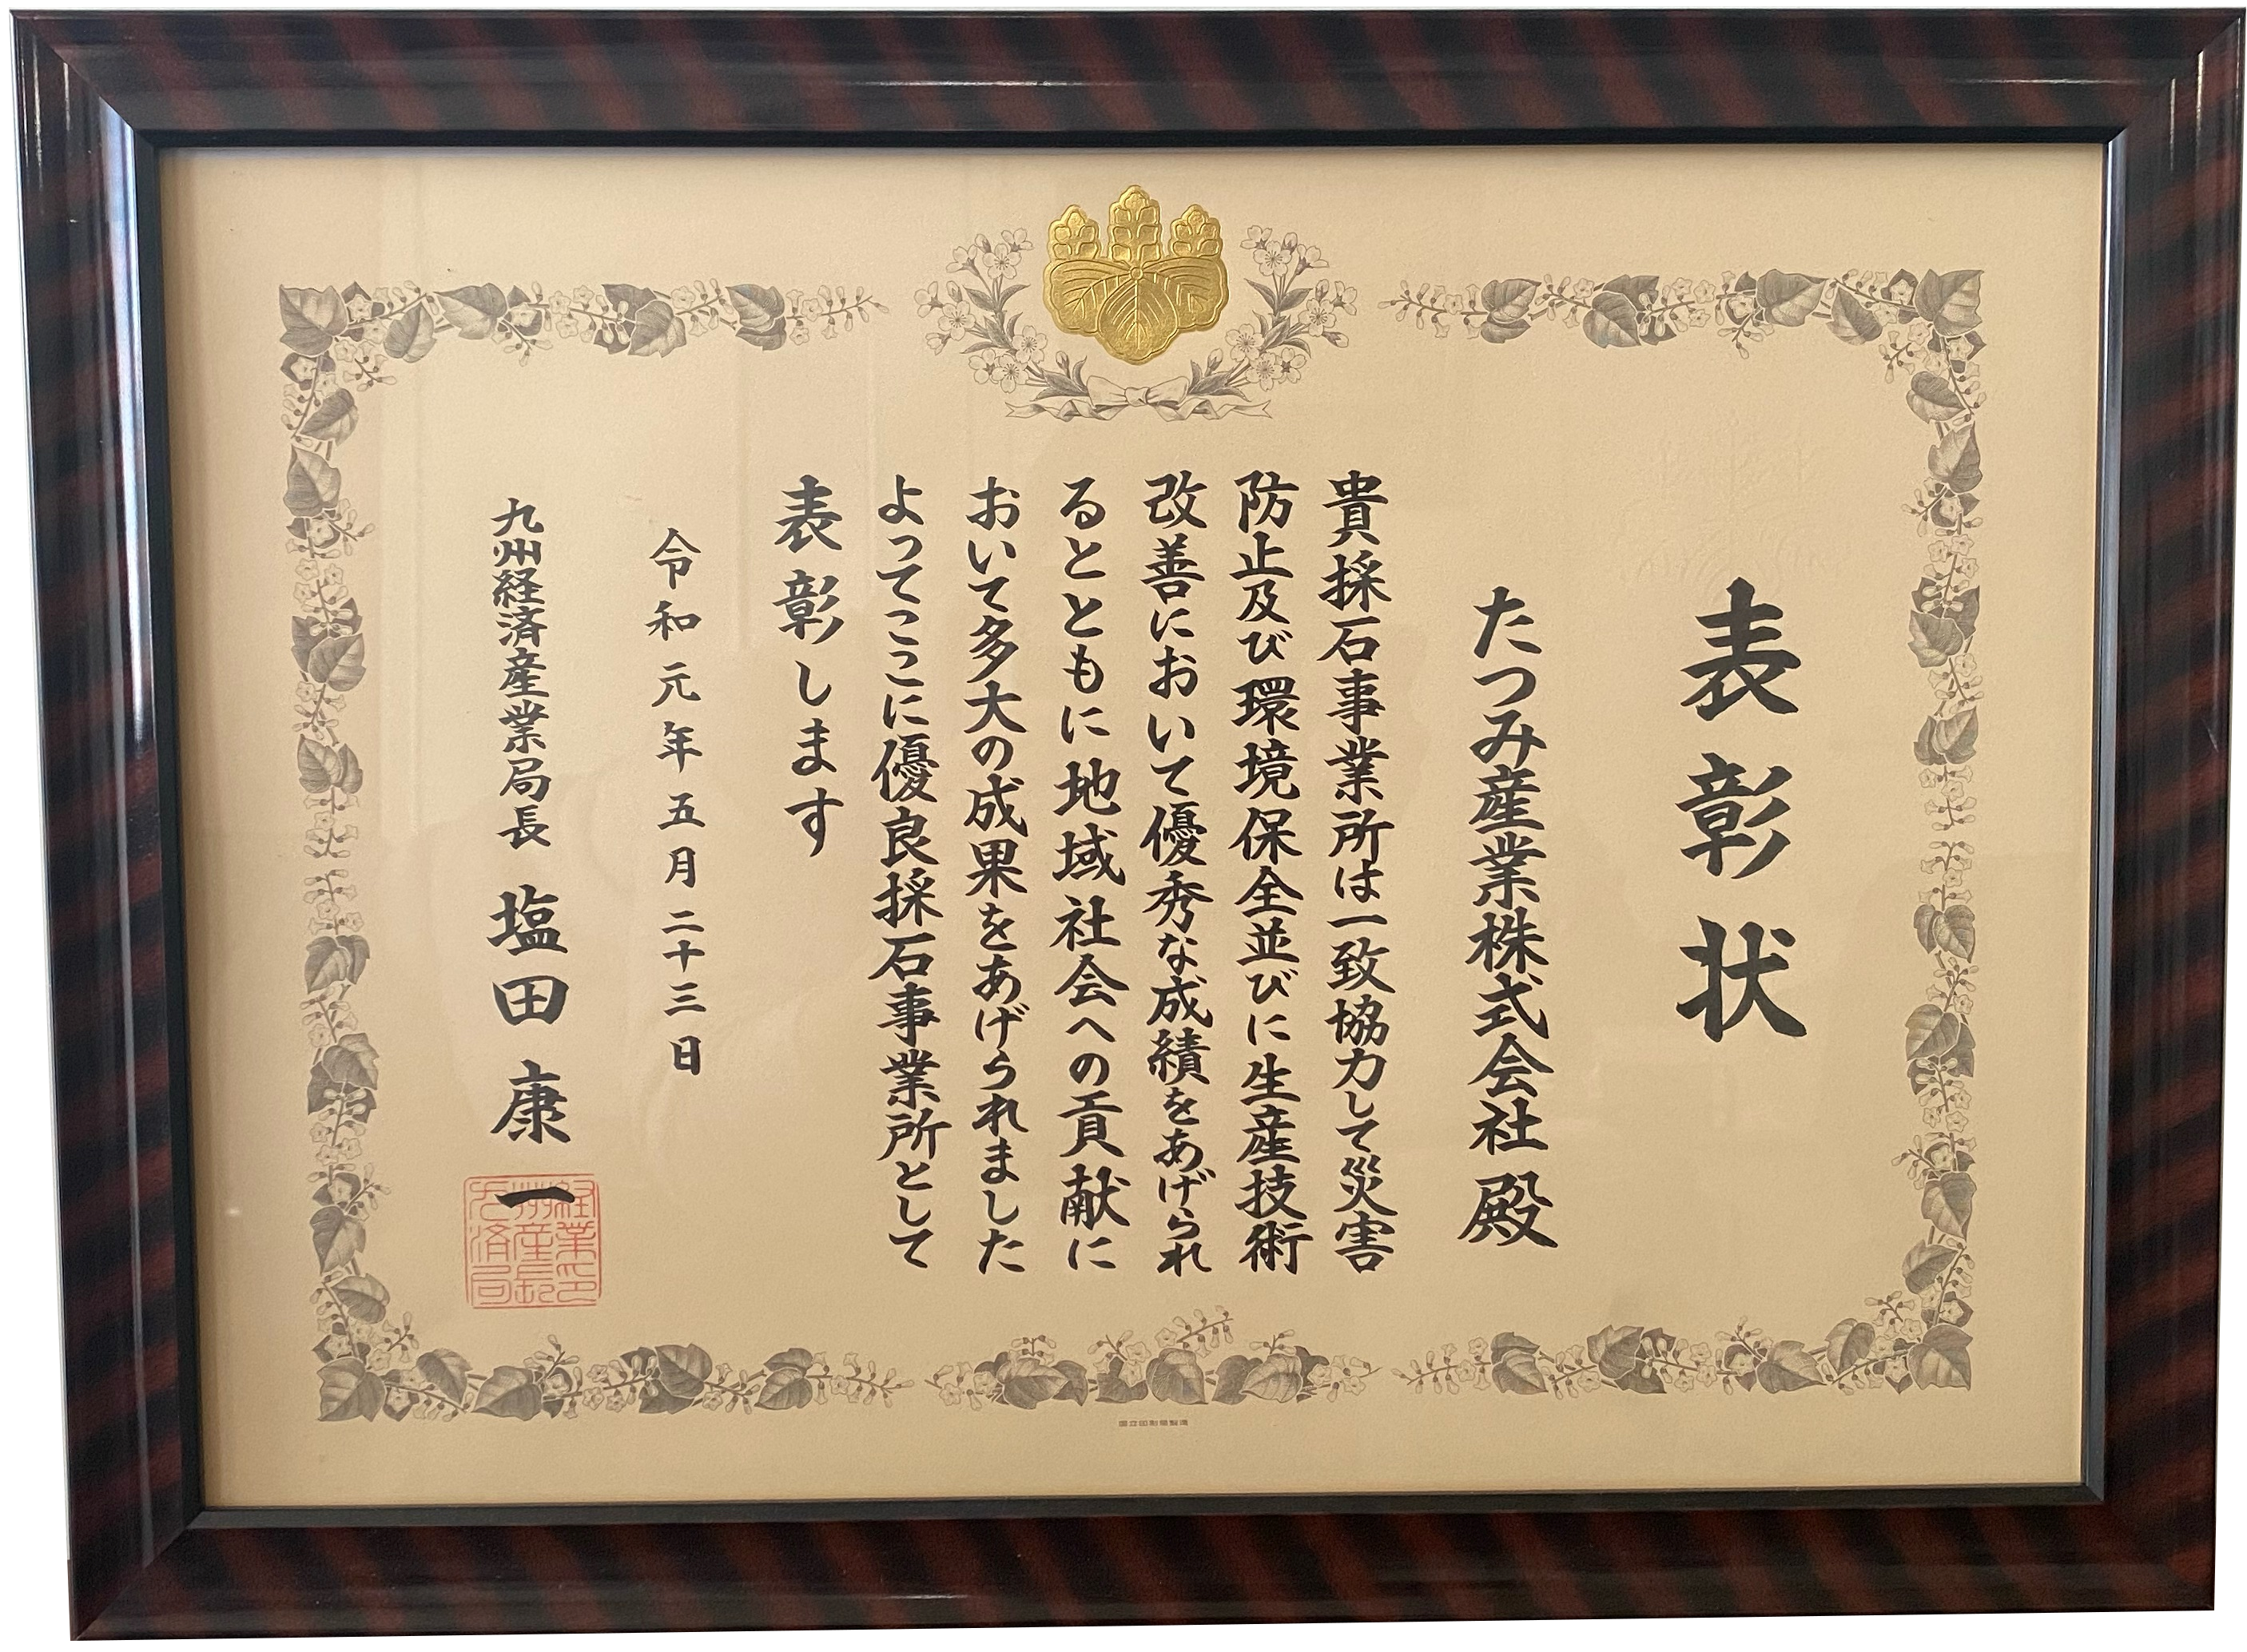 表彰状
たつみ産業株式会社殿
貴採石事業所は一致協力して災害
防止及び環境保全並びに生産技術
改善において優秀な成績をあげられ
るとともに地域社会への貢献に
おいて多大の成果をあげられました
よってここに優良採石事業所として
表彰します
令和元年五月二十三日
九州経済産業局長 塩田康一